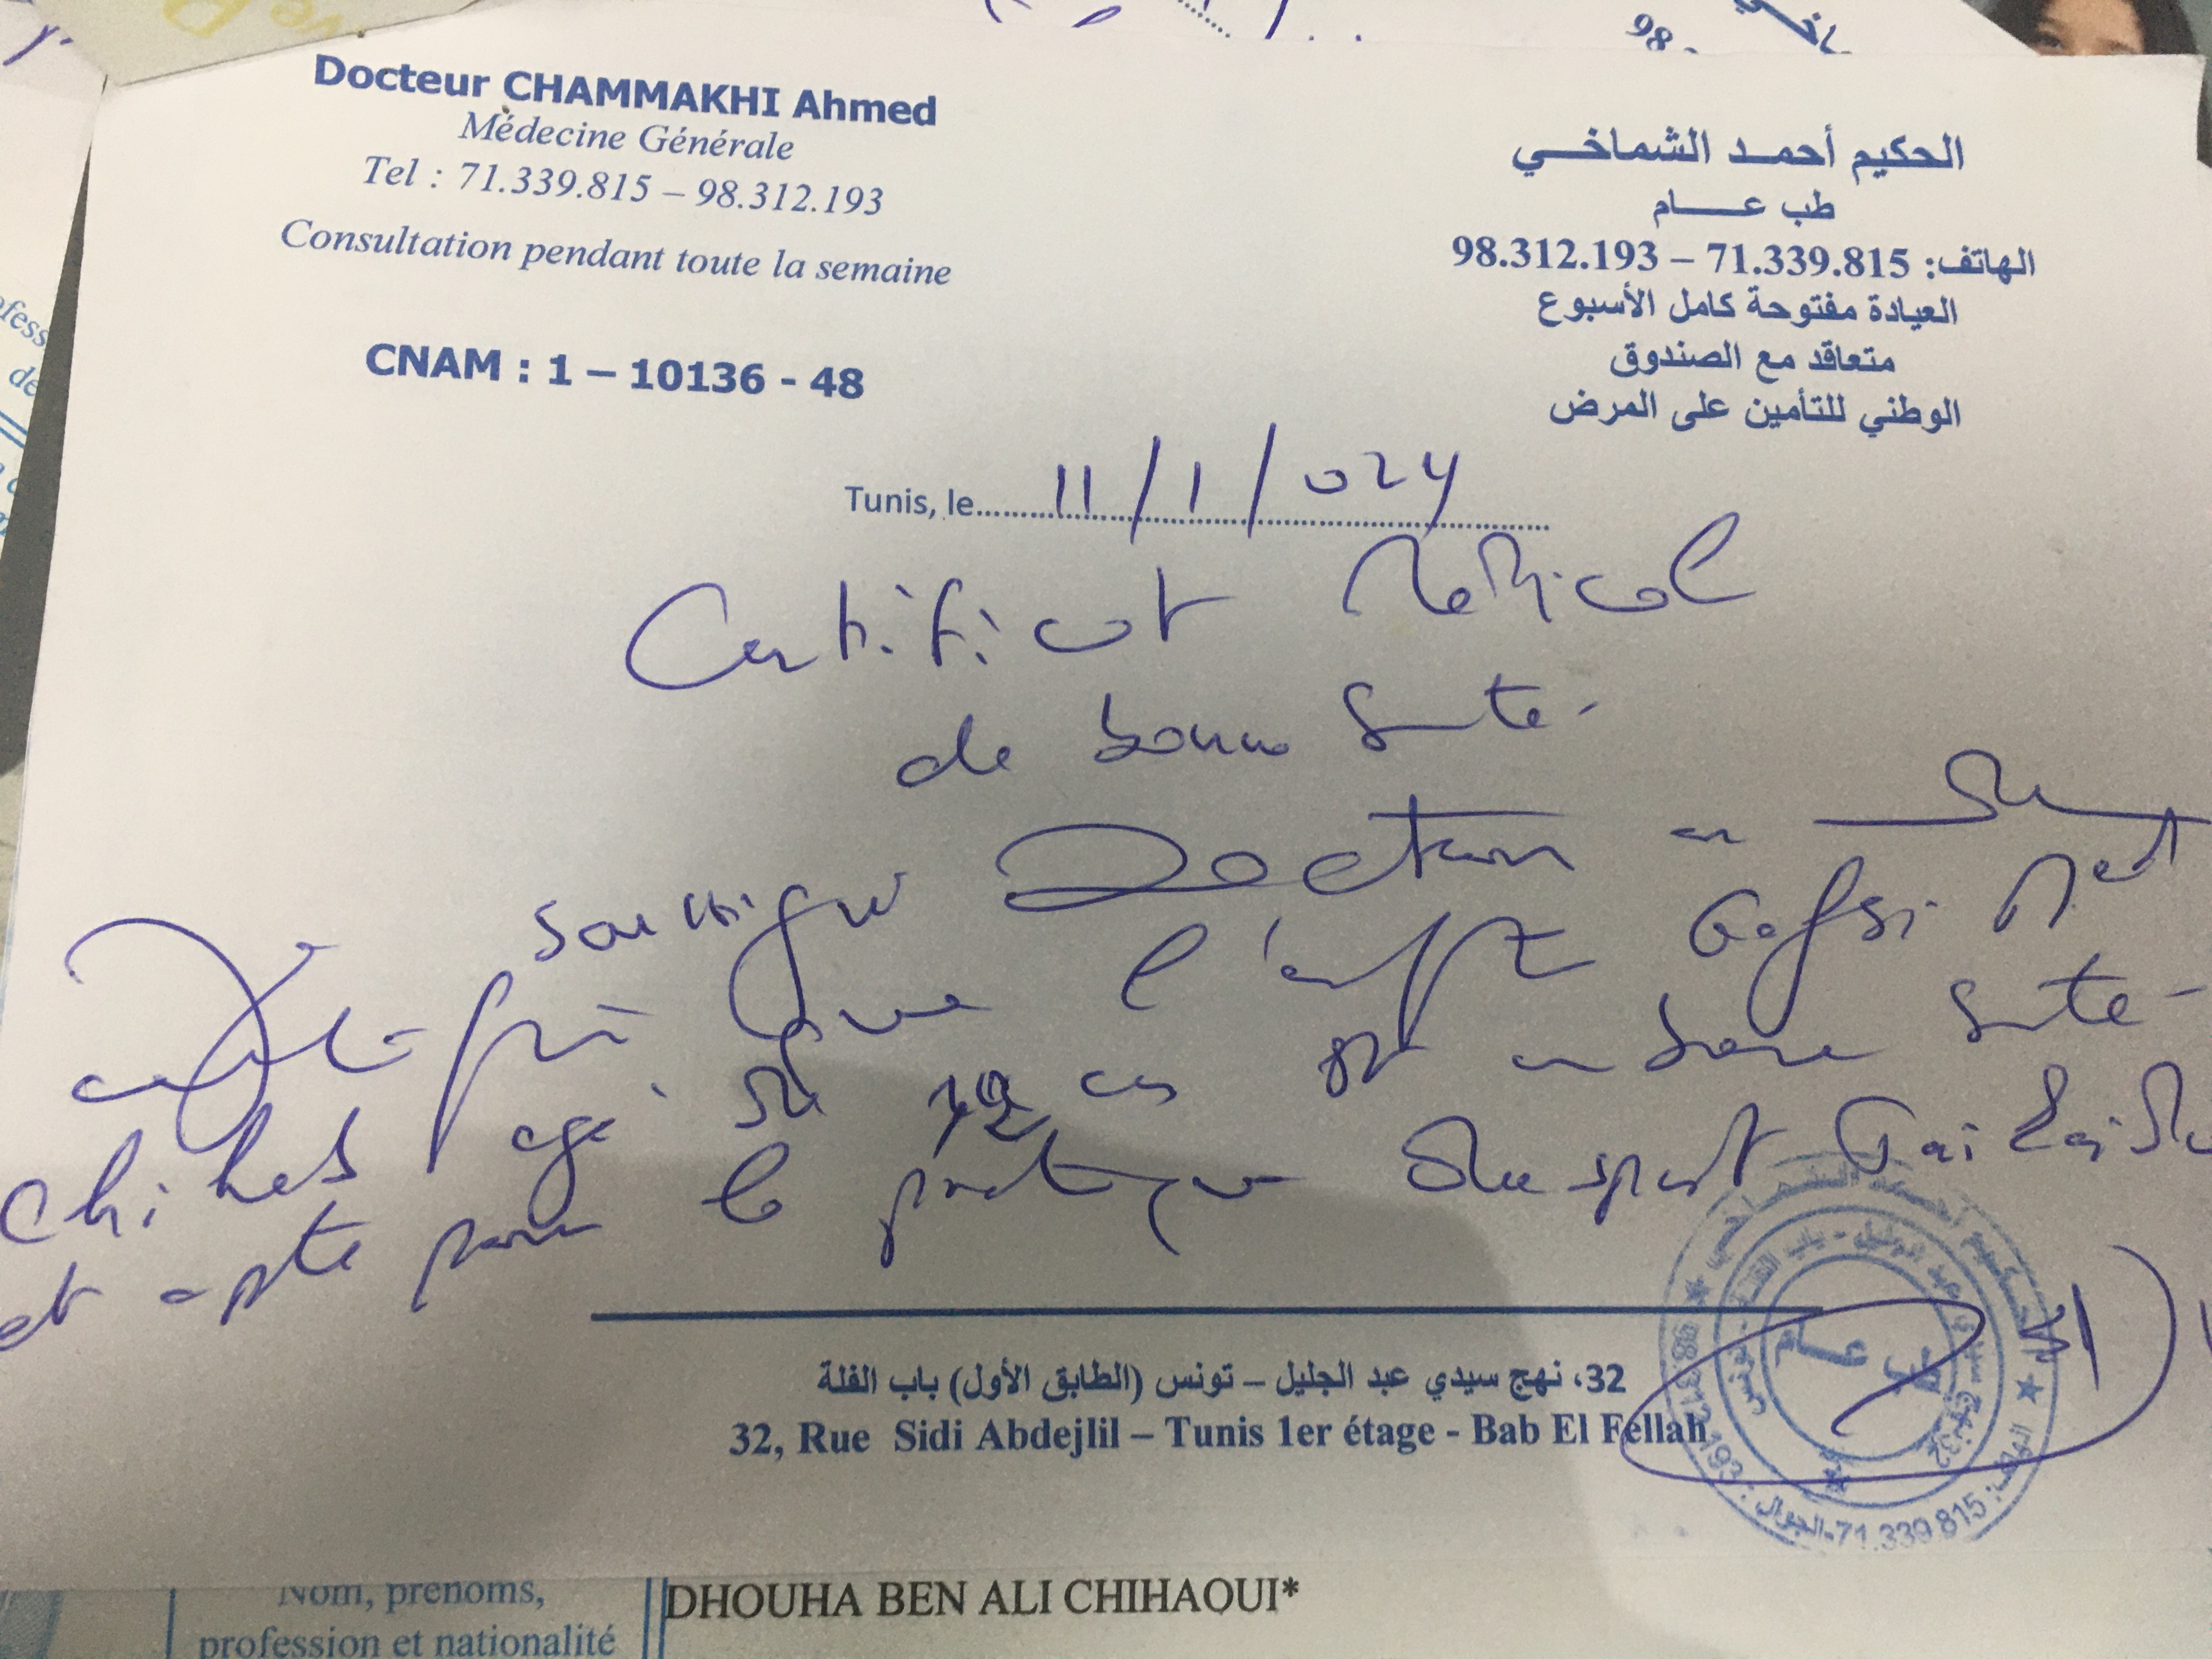 Docteur CHAMMAKHI Ahmed
Médecine Générale
Tel : 71.339.815 – 98.312.193
Consultation pendant toute la semaine
CNAM : 1 – 10136 - 48
الحكيم أحمد الشماخي
طب عام
الهاتف: 71.339.815 – 98.312.193
العيادة مفتوحة كامل الأسبوع
متعاقد مع الصندوق
الوطني للتأمين على المرض
Tunis, le 11/1/024
Certificat Médical
de bonne Santé
soussigné Docteur en
certifie que l'enfant Gafsi Med
Chiheb agé de 12 ans est en bonne Santé
et apte pour la pratique du sport
طب عام
71.339.815
32، نهج سيدي عبد الجليل – تونس (الطابق الأول) باب الفلة
32, Rue Sidi Abdejlil – Tunis 1er étage - Bab El Fellah
Nom, prénoms,
profession et nationalité
DHOUHA BEN ALI CHIHAOUI*